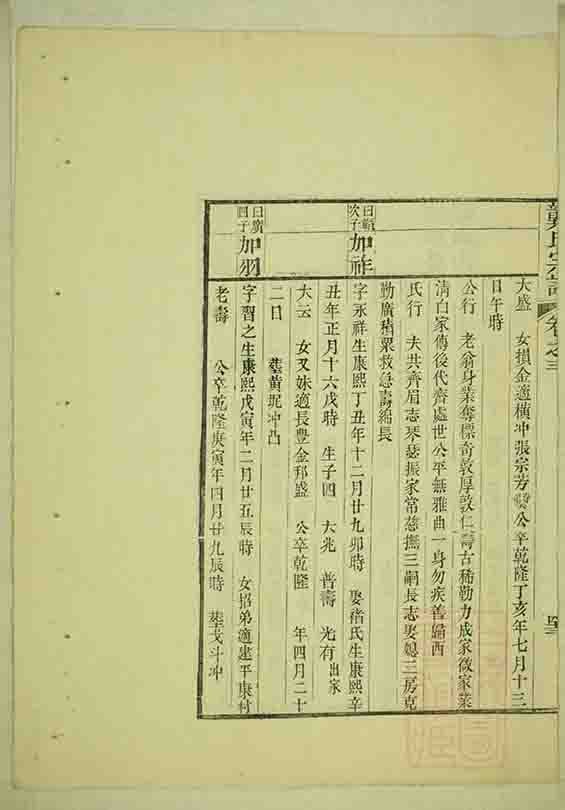 卷之三
大盛　女損金適橫冲張宗芳　公卒乾隆丁亥年七月十三
日午時
公行　老翁身業奪標奇敦厚敦仁壽古稀勤力成家微家業
清白家傳後代齊處世公平無雅曲一身勿疾善歸西
氏行　夫共齊眉志琴瑟振家常慈撫三嗣長志娶媳三房克
勤廣積粟救急壽綿長
次子　加祥
字永祥生康熙丁丑年十二月廿九卯時　娶褚氏生康熙辛
丑年正月十六戌時　生子四　大兆　普壽　光有出家
大云　女又妹適長豐金邦盛　公卒乾隆　年四月二十
二日　塟黃泥冲凸
曰廣四子　加羽
字習之生康熙戊寅年二月廿五辰時　女招弟適建平康村
老壽　公卒乾隆庚寅年四月廿九辰時　塟戈斗冲